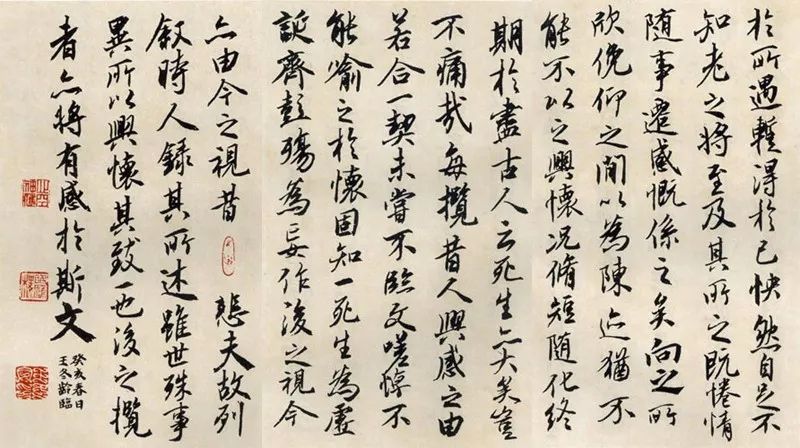 於所遇蹔得於己怏然自足不
知老之將至及其所之既惓情
随事遷感慨係之矣向之所
欣俛仰之閒以為陳迹猶不
能不以之興懷況脩短随化終
期於盡古人云死生亦大矣豈
不痛哉每攬昔人興感之由
若合一契未嘗不臨文嗟悼不
能喻之於懷固知一死生為虛
誕齊彭殤為妄作後之視今
亦由今之視昔 悲夫故列
叙時人錄其所述雖世殊事
異所以興懷其致一也後之攬
者亦將有感於斯文
癸亥春日
王冬齡臨